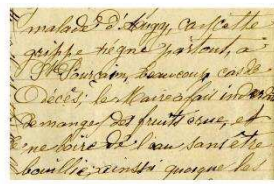 malade d'Augy, car cette
grippe règne partout, à
St Pourçain, beaucoup cas de
Décès, le Maire a fait
de manger des fruits crue, et
ne boire de l'eau sans être
bouillie, ainsi quoique les